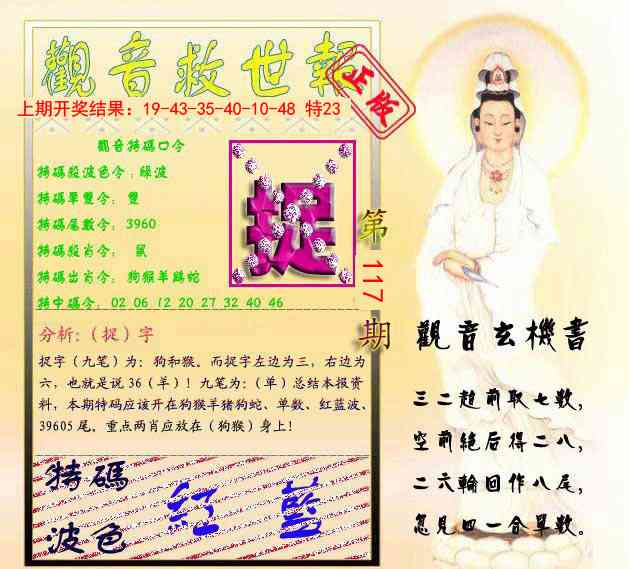 觀音救世報
正版
上期开奖结果：19-43-35-40-10-48 特23
觀音特碼口令
特碼殺波色令：綠波
特碼單雙令： 雙
特碼尾數令：3960
特碼殺肖令： 鼠
特碼出肖令： 狗猴羊鷄蛇
特中碼令：02 06 12 20 27 32 40 46
捉
第117期
分析：（捉）字
捉字（九笔）为：狗和猴。而捉字左边为三，右边为
六，也就是说36（羊）！九笔为：（单）总结本报资
料，本期特码应该开在狗猴羊猪狗蛇、单数、红蓝波、
39605尾。重点两肖应放在（狗猴）身上！
特碼
波色
紅 藍
觀音玄機書
三二趕前取七數，
空前絕后得二八，
二六輪回作八尾，
忽見四一合單數。